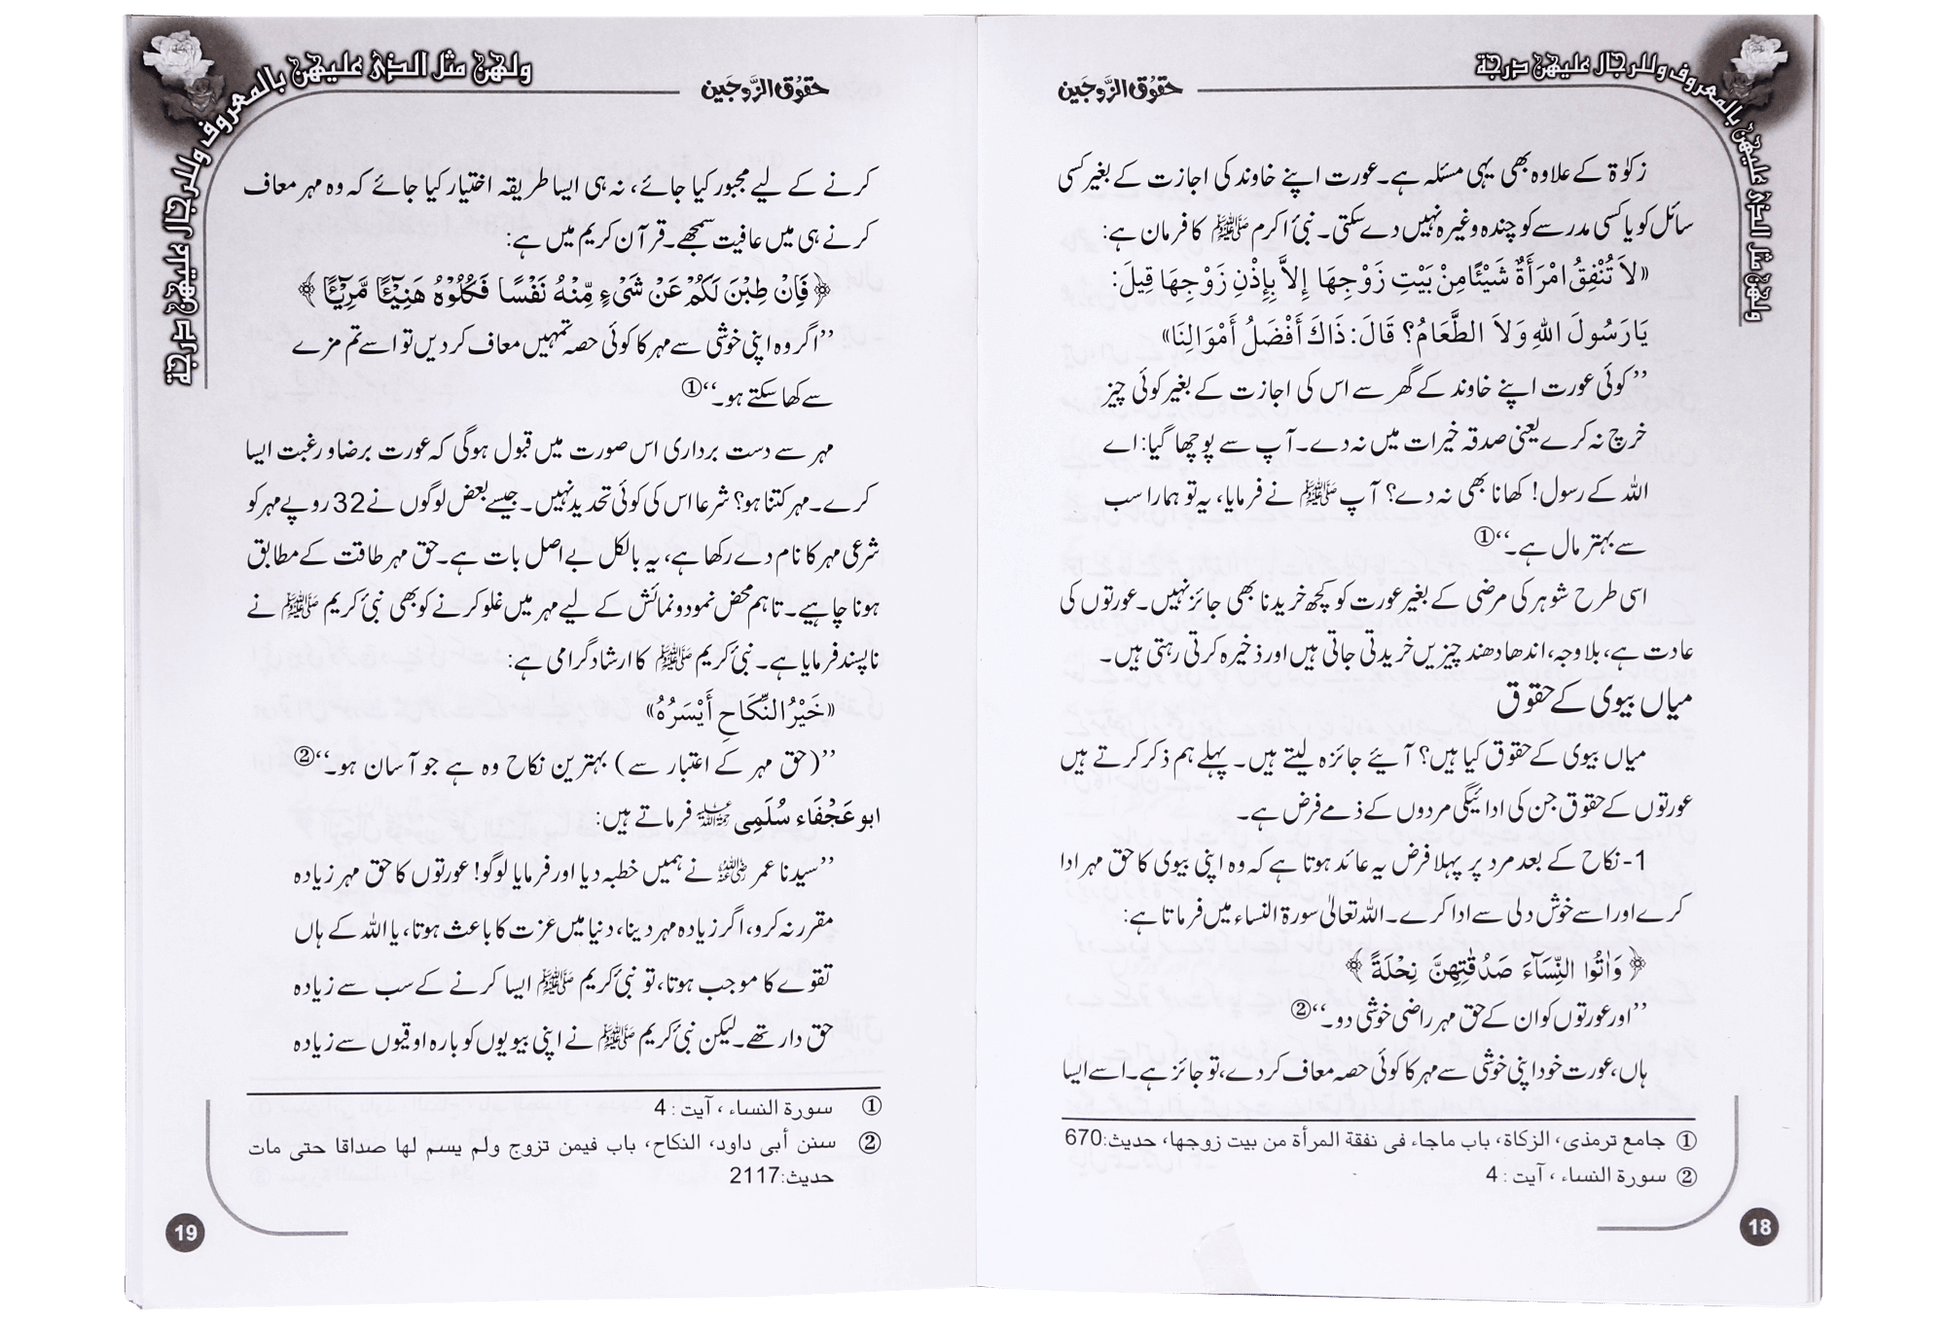 ولهن مثل الذي عليهن بالمعروف وللرجال عليهن درجة
حقوق الزَّوجَین
زکوٰۃ کے علاوہ بھی یہی مسئلہ ہے۔ عورت اپنے خاوند کی اجازت کے بغیر کسی
سائل کو یا کسی مدرسے کو چندہ وغیرہ نہیں دے سکتی۔ نبیٔ اکرم ﷺ کا فرمان ہے:
«لاَ تُنْفِقُ امْرَأَةٌ شَيْئًا مِنْ بَيْتِ زَوْجِهَا إِلاَّ بِإِذْنِ زَوْجِهَا قِيلَ:
يَا رَسُولَ اللهِ وَلاَ الطَّعَامُ؟ قَالَ: ذَاكَ أَفْضَلُ أَمْوَالِنَا»
’’کوئی عورت اپنے خاوند کے گھر سے اس کی اجازت کے بغیر کوئی چیز
خرچ نہ کرے یعنی صدقہ خیرات میں نہ دے۔ آپ سے پوچھا گیا: اے
اللہ کے رسول! کھانا بھی نہ دے؟ آپ ﷺ نے فرمایا، یہ تو ہمارا سب
سے بہتر مال ہے۔‘‘①
اسی طرح شوہر کی مرضی کے بغیر عورت کو کچھ خریدنا بھی جائز نہیں۔ عورتوں کی
عادت ہے، بلا وجہ، اندھا دھند چیزیں خریدتی جاتی ہیں اور ذخیرہ کرتی رہتی ہیں۔
میاں بیوی کے حقوق
میاں بیوی کے حقوق کیا ہیں؟ آیئے جائزہ لیتے ہیں۔ پہلے ہم ذکر کرتے ہیں
عورتوں کے حقوق جن کی ادائیگی مردوں کے ذمے فرض ہے۔
1- نکاح کے بعد مرد پر پہلا فرض یہ عائد ہوتا ہے کہ وہ اپنی بیوی کا حق مہر ادا
کرے اور اسے خوش دلی سے ادا کرے۔ اللہ تعالیٰ سورۃ النساء میں فرماتا ہے:
﴿ وَاٰتُوا النِّسَآءَ صَدُقٰتِهِنَّ نِحْلَةً ﴾
’’اور عورتوں کو ان کے حق مہر راضی خوشی دو۔‘‘②
ہاں، عورت خود اپنی خوشی سے مہر کا کوئی حصہ معاف کر دے، تو جائز ہے۔ اسے ایسا
① جامع ترمذی، الزکاة، باب ماجاء فی نفقة المرأة من بیت زوجها، حدیث:670
② سورة النساء ، آیت : 4
18
ولهن مثل الذي عليهن بالمعروف وللرجال عليهن درجة
حقوق الزَّوجَین
کرنے کے لیے مجبور کیا جائے، نہ ہی ایسا طریقہ اختیار کیا جائے کہ وہ مہر معاف
کرنے ہی میں عافیت سمجھے۔ قرآن کریم میں ہے:
﴿ فَاِنْ طِبْنَ لَكُمْ عَنْ شَىْءٍ مِّنْهُ نَفْسًا فَكُلُوْهُ هَنِيْٓـًٔا مَّرِيْٓـًٔا ﴾
’’اگر وہ اپنی خوشی سے مہر کا کوئی حصہ تمہیں معاف کر دیں تو اسے تم مزے
سے کھا سکتے ہو۔‘‘①
مہر سے دست برداری اس صورت میں قبول ہوگی کہ عورت برضا و رغبت ایسا
کرے۔ مہر کتنا ہو؟ شرعا اس کی کوئی تحدید نہیں۔ جیسے بعض لوگوں نے 32 روپے مہر کو
شرعی مہر کا نام دے رکھا ہے، یہ بالکل بے اصل بات ہے۔ حق مہر طاقت کے مطابق
ہونا چاہیے۔ تاہم محض نمود و نمائش کے لیے مہر میں غلو کرنے کو بھی نبیٔ کریم ﷺ نے
ناپسند فرمایا ہے۔ نبیٔ کریم ﷺ کا ارشاد گرامی ہے:
«خَيْرُ النِّكَاحِ أَيْسَرُهُ»
’’(حق مہر کے اعتبار سے) بہترین نکاح وہ ہے جو آسان ہو۔‘‘②
ابو عَجْفَاء سُلَمِی رحمہ اللہ فرماتے ہیں:
’’سیدنا عمر رضی اللہ عنہ نے ہمیں خطبہ دیا اور فرمایا لوگو! عورتوں کا حق مہر زیادہ
مقرر نہ کرو، اگر زیادہ مہر دینا، دنیا میں عزت کا باعث ہوتا، یا اللہ کے ہاں
تقوے کا موجب ہوتا، تو نبیٔ کریم ﷺ ایسا کرنے کے سب سے زیادہ
حق دار تھے۔ لیکن نبیٔ کریم ﷺ نے اپنی بیویوں کو بارہ اوقیوں سے زیادہ
① سورة النساء ، آیت : 4
② سنن أبی داود، النکاح، باب فیمن تزوج ولم یسم لها صداقا حتی مات
حدیث:2117
19